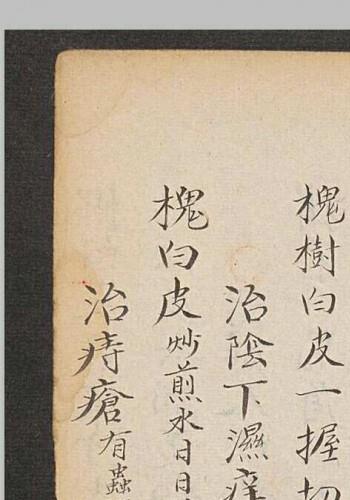 槐樹白皮一握切
治陰下濕痒
槐白皮炒煎水日日
治痔瘡有蟲